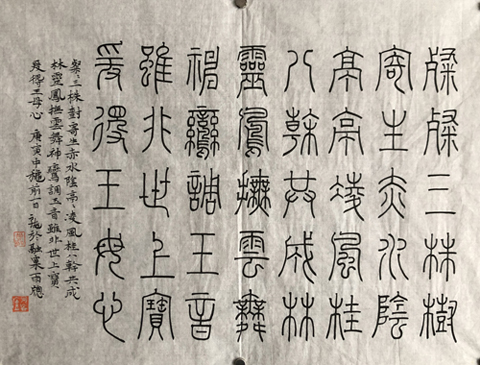 粲粲三株樹
寄生赤水陰
亭亭凌風桂
八榦共成林
靈鳳撫雲舞
神鸞調玉音
雖非世上寶
爰得王母心
粲〻三株樹寄生赤水陰亭〻凌風桂八榦共成
林靈鳳撫雲舞神鸞調玉音雖非世上寶
爰得王母心 庚寅中穐前一日